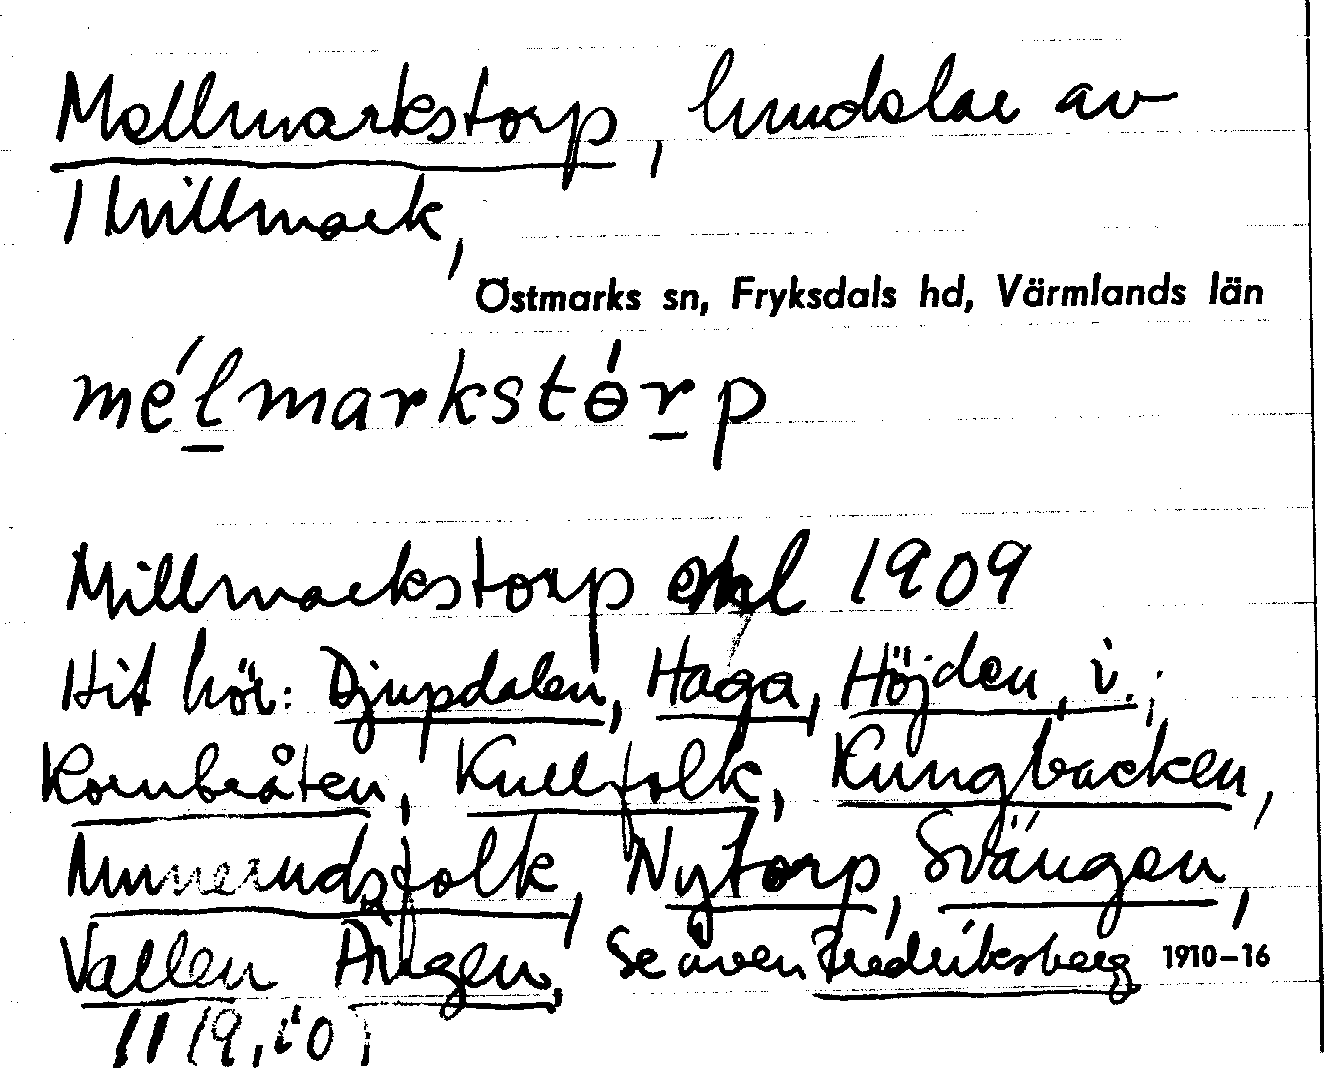 Mellmarkstorp, hmdelar av
1 Millmark,
Östmarks sn, Fryksdals hd, Värmlands län
mélmarkstórp
Millmarkstorp 1909
Hit hör: Djupdalen, Haga, Höjden, i.;
Kornbråten, Kullfolk, Kungbacken,
Munnerudsfolk, Nytorp, Svängen,
Vallen Ängen, Se även Fredriksberg 1910–16